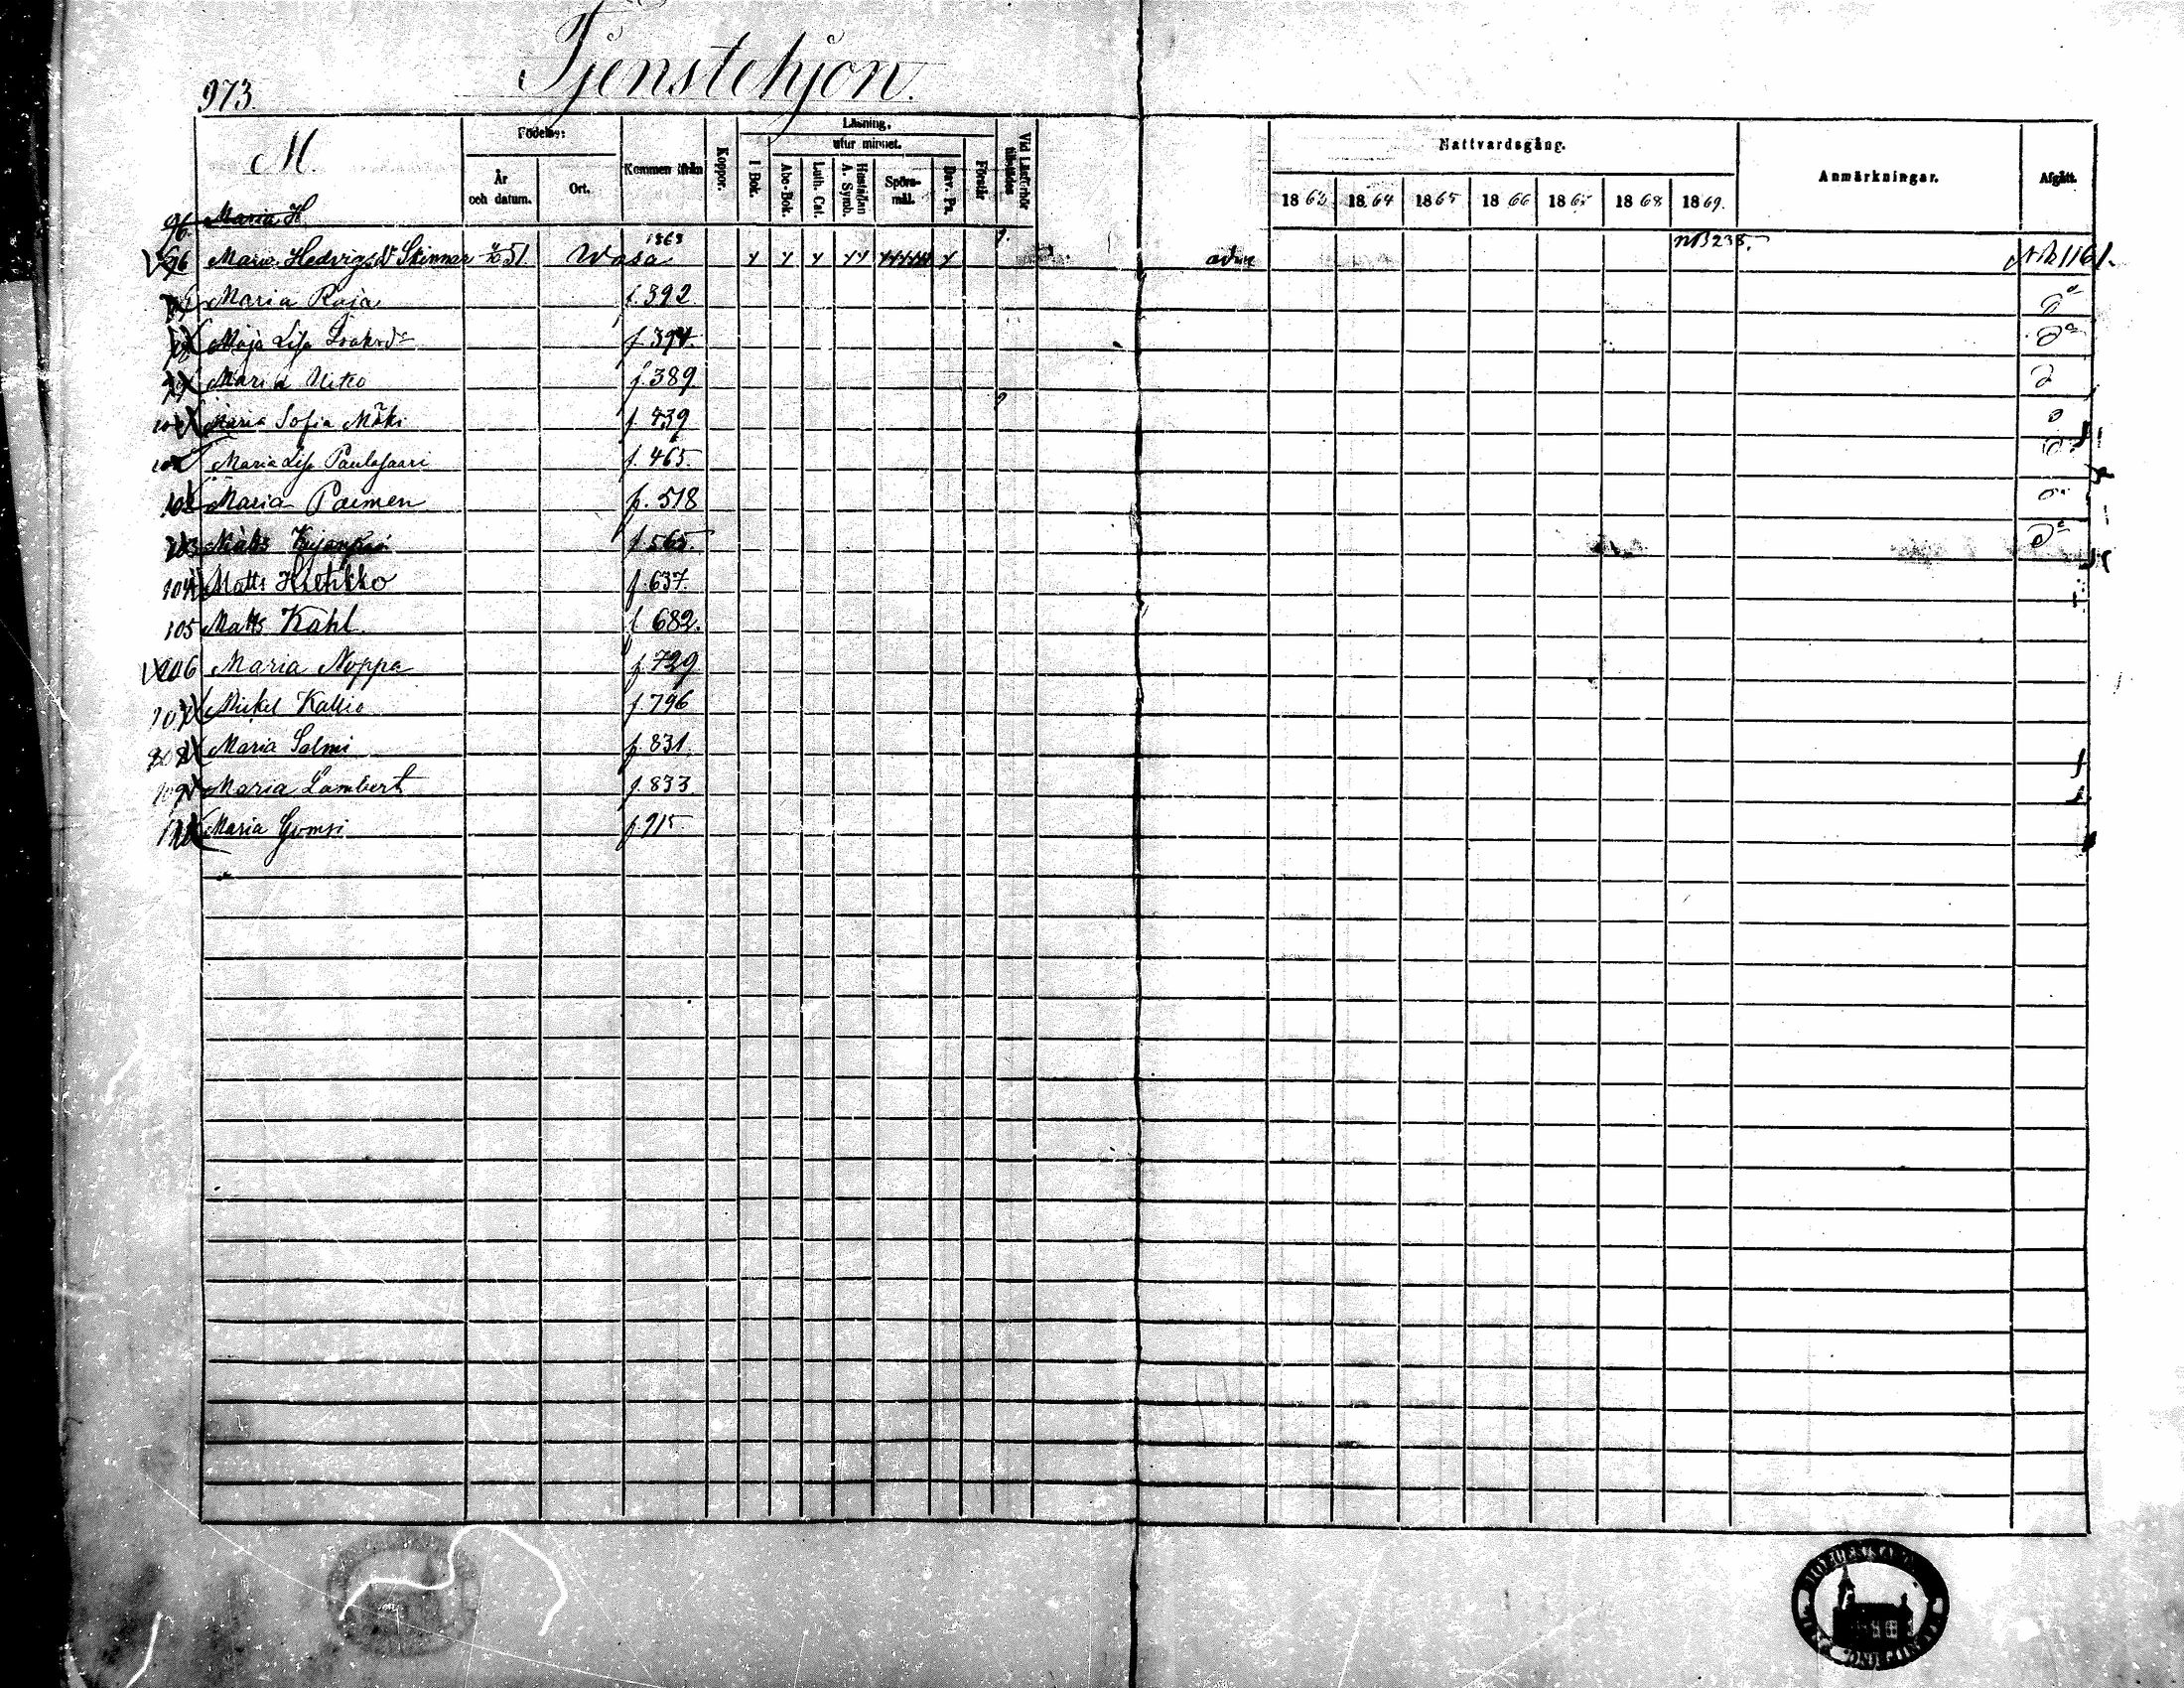 973.
Tjenstehjon.
M.
Födelse:
År och datum.
Ort.
Kommen ifrån
Koppor.
Läsning,
utur minnet.
I Bok.
Abc-Bok.
Luth. Cat.
Hustaflan A. Symb.
Spörsmål.
Dav. Ps.
Förstår
Vid Läsförhör tillstädes
Nattvardsgång.
1863 1864 1865 1866 186 1868 1869.
Anmärkningar.
Afgått.
96. Maria H
1868
96 Maria Hedvig Skinnar 51. Wasa NB 238. NB 1161.
Maria Raja f. 392
98 Maja Lisa f. 394
99 Maria f. 389
Maria Sofia Mäki f. 439
Maria Lisa Paulasaari f. 465.
102 Maria Paimen f. 518
103 f. 565.
104 Matts f. 637.
105 Matts Kahl. f. 682.
106 Maria Noppa f. 729
107 Mickel Kallio f. 796
108 Maria Salmi f. 831
109 Maria Lambert f. 833
110 Maria Gomsi f. 915